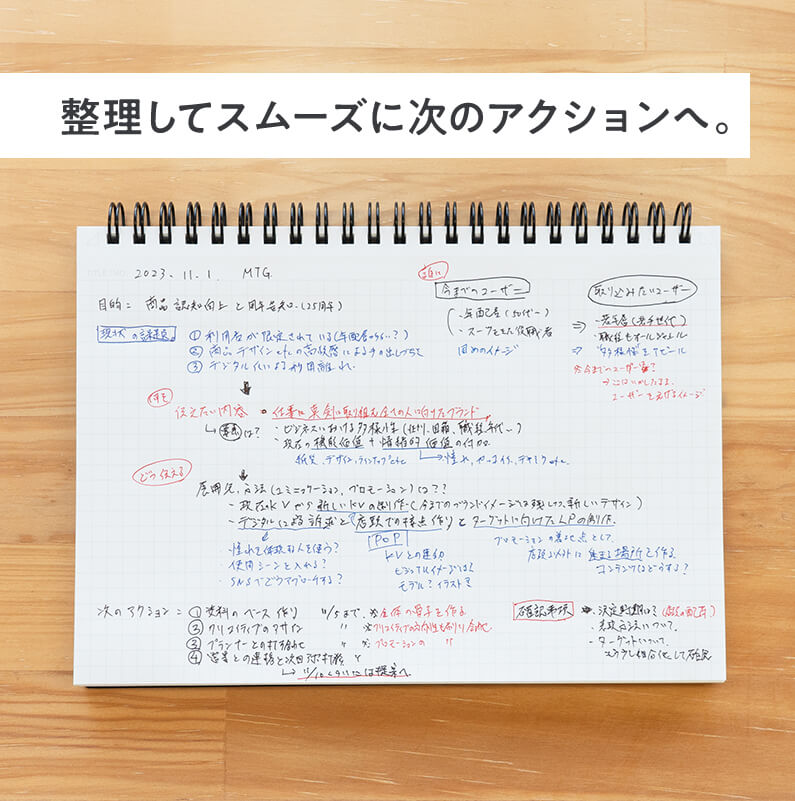 整理してスムーズに次のアクションへ。
2023.11.1. MTG
目的= 商品認知向上と周年告知(25周年)
誰に
今までのユーザー
・年配層(50代〜)
・スーツをきた役職者
固めのイメージ
取り込みたいユーザー
⇒ ・若年層(若手世代)
・職種もオールジャンル
⇒ "多様性"をアピール
※今までのユーザー層?
→ここはいかしたまま、
ユーザーを広げるイメージ
現状の課題
① 利用者が限定されている(年配層が多い?)
② 商品デザインetcの高級感による手の出しづらさ
③ デジタル化による紙用離れ
何を
伝えたい内容 ・仕事に真剣に取り組む全ての人に向けたブランド
→ は? ・ビジネスにおける多様性(社内、目線、職種、年代〜)
・現在の機能価値+情緒的価値の付加
紙質、デザイン、ラインナップetc →憧れ、 etc.
どう伝える
展開先、方法(コミュニケーション、プロモーション)は??
・現在のKVから新しいKVの制作(今までのブランドイメージは残しつつ、新しいデザイン)
・デジタルによる訴求と店頭での接点作りとターゲットに向けたLPの制作。
・憧れを体現する人を使う?
・使用シーンを入れる?
・SNSでどうアプローチする?
POP
KVとの連動
ビジュアルイメージは?
モデル?イラスト?
プロモーションの 地点として、
店頭以外に 場所を作る
コンテンツはどうする?
次のアクション= ① 資料のベース作り 11/5まで ※全体の骨子を作る
② クリエイティブのアサイン 〃 ※クリエイティブの方向性も 合わせ
③ プランナーとの打ち合わせ 〃 ※プロモーションの 〃
④ 営業との連携と次回の打合せ 〃
→ 11/10 には提案へ
確認事項
・決定時期は?
・ 方法について。
・ターゲットについて、
もう少し細分化して確認